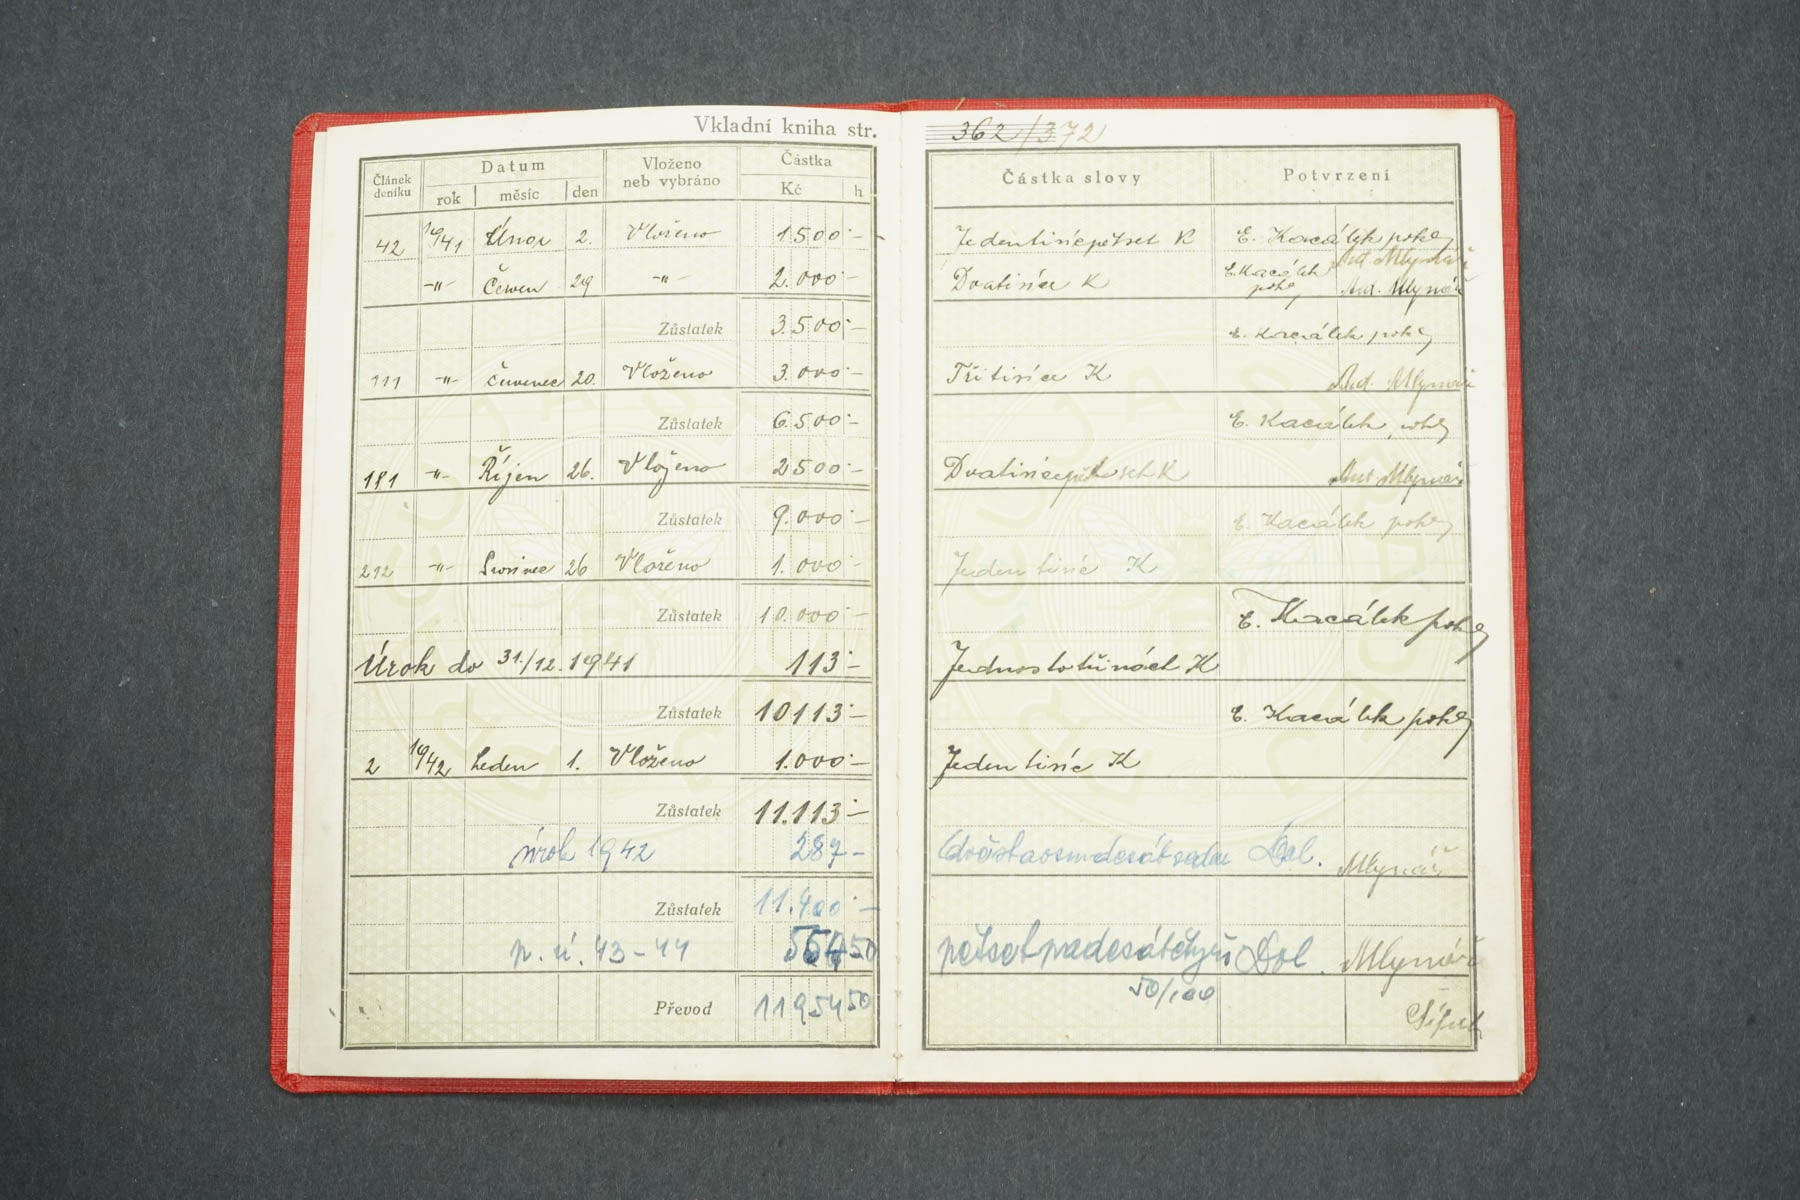 Vkladní kniha str. 362/372
Článek deníku Datum Vloženo neb vybráno Částka Částka slovy Potvrzení
rok měsíc den Kč h
42 1941 Únor 2. Vloženo 1500·— Jedentisícpětset K E. Kacálek pokl
Ant Mlynář
-"- Červen 29 -"- 2.000·— Dvatisíce K E. Kacálek pokl Ant. Mlynář
Zůstatek 3.500·— E. Kacálek pokl
111 -"- Červenec 20. Vloženo 3.000·— Třitisíce K Ant. Mlynář
Zůstatek 6.500·— E. Kacálek pokl
181 -"- Říjen 26. Vloženo 2500·— Dvatisícepětset K Ant Mlynář
Zůstatek 9.000·— E. Kacálek pokl
212 -"- Prosinec 26 Vloženo 1.000·— Jeden tisíc K
Zůstatek 10.000·— E. Kacálek pokl
Úrok do 31./12. 1941 113·— Jednostotřináct K
Zůstatek 10113·— E. Kacálek pokl
2 1942 Leden 1. Vloženo 1.000·— Jeden tisíc K
Zůstatek 11.113·—
úrok 1942 287— dvěstaosmdesátsedm Dol. Mlynář
Zůstatek 11.400·—
p. ú. 43-44 554 50 pětsetpadesátčtyři Dol. Mlynář
50/100
Převod 11954 50